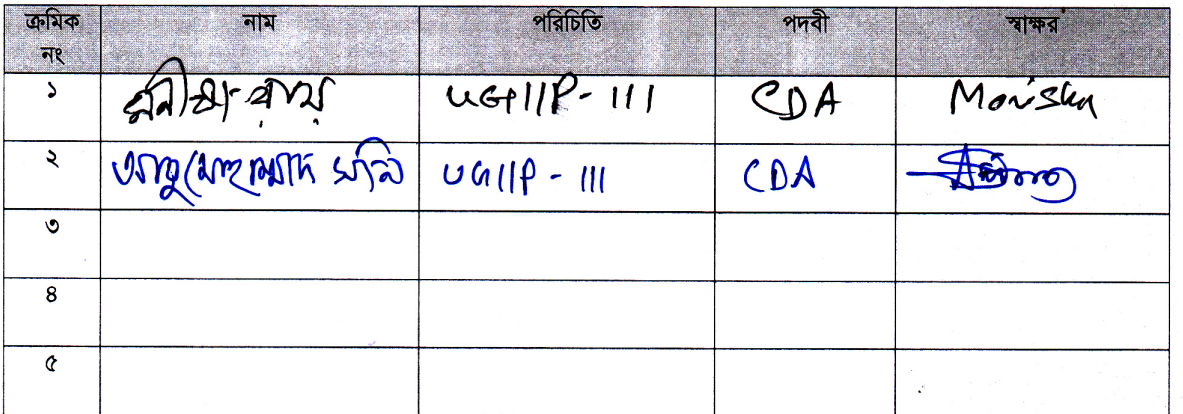 ক্রমিক নং নাম পরিচিতি পদবী স্বাক্ষর
১ মনীষা রায় UGIIP-III CDA Monisha
২ আবু মোহাম্মাদ UGIIP-III CDA
৩
৪
৫